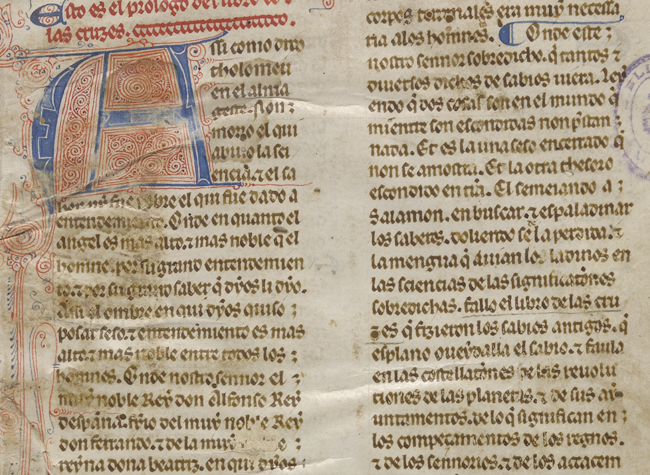 Esto es el prologo del libro de
las cruzes.
ssi como dixo
tholomeu
en el alma
geste. Non ⁊
moro el qui
abiuo la sci
encia. ⁊ el sa
ber. nj fue pobre el qui fue dado a
entendemiento. Onde en quanto el
angel es mas alto. ⁊ mas noble q̃ el
homne. por su grand entendemien
to. ⁊ por su grand saber q̃ dyos li dyo.
assi el ombre en qui dyos quiso
posar seso. ⁊ entendemiento es mas
alto. ⁊ mas noble entre todos los
homnes. Onde nostro sennor el
muy noble Rey don Alfonso Rey
despanna. fyio del muy noble Rey
don ferrando. ⁊ de la muy
reyna dona beatriz. en qui dyos
corpos terrenales era muy necessa
ria a los homnes. Onde este
nostro sennor sobredicho. q̃ tantos ⁊
diuersos dichos de sabios uiera. ley
endo q̃ dos cosas son en el mundo q̃
mientre son escondidas non p̃stan
nada. Et es la una seso encerrado q̃
non se amostra. Et la otra thesoro
escondido en tr̃a. El semeiando a
Salamon. en buscar. ⁊ espaladinar
los saberes. doliendo se la perdida. ⁊
la mengua q̃ auian los ladinos en
las sciencias de las significationes
sobredichas. fallo el libro de las cru
zes q̃ fizieron los sabios antigos. q̃
esplano oueydalla el sabio. ⁊ faula
en las costellationes de las reuolu
tiones de las planetas. ⁊ de sus ay
untamentos. de lo q̃ significan en
los compeçamentos de los regnos.
⁊ de los sennorios. ⁊ de los acaecem